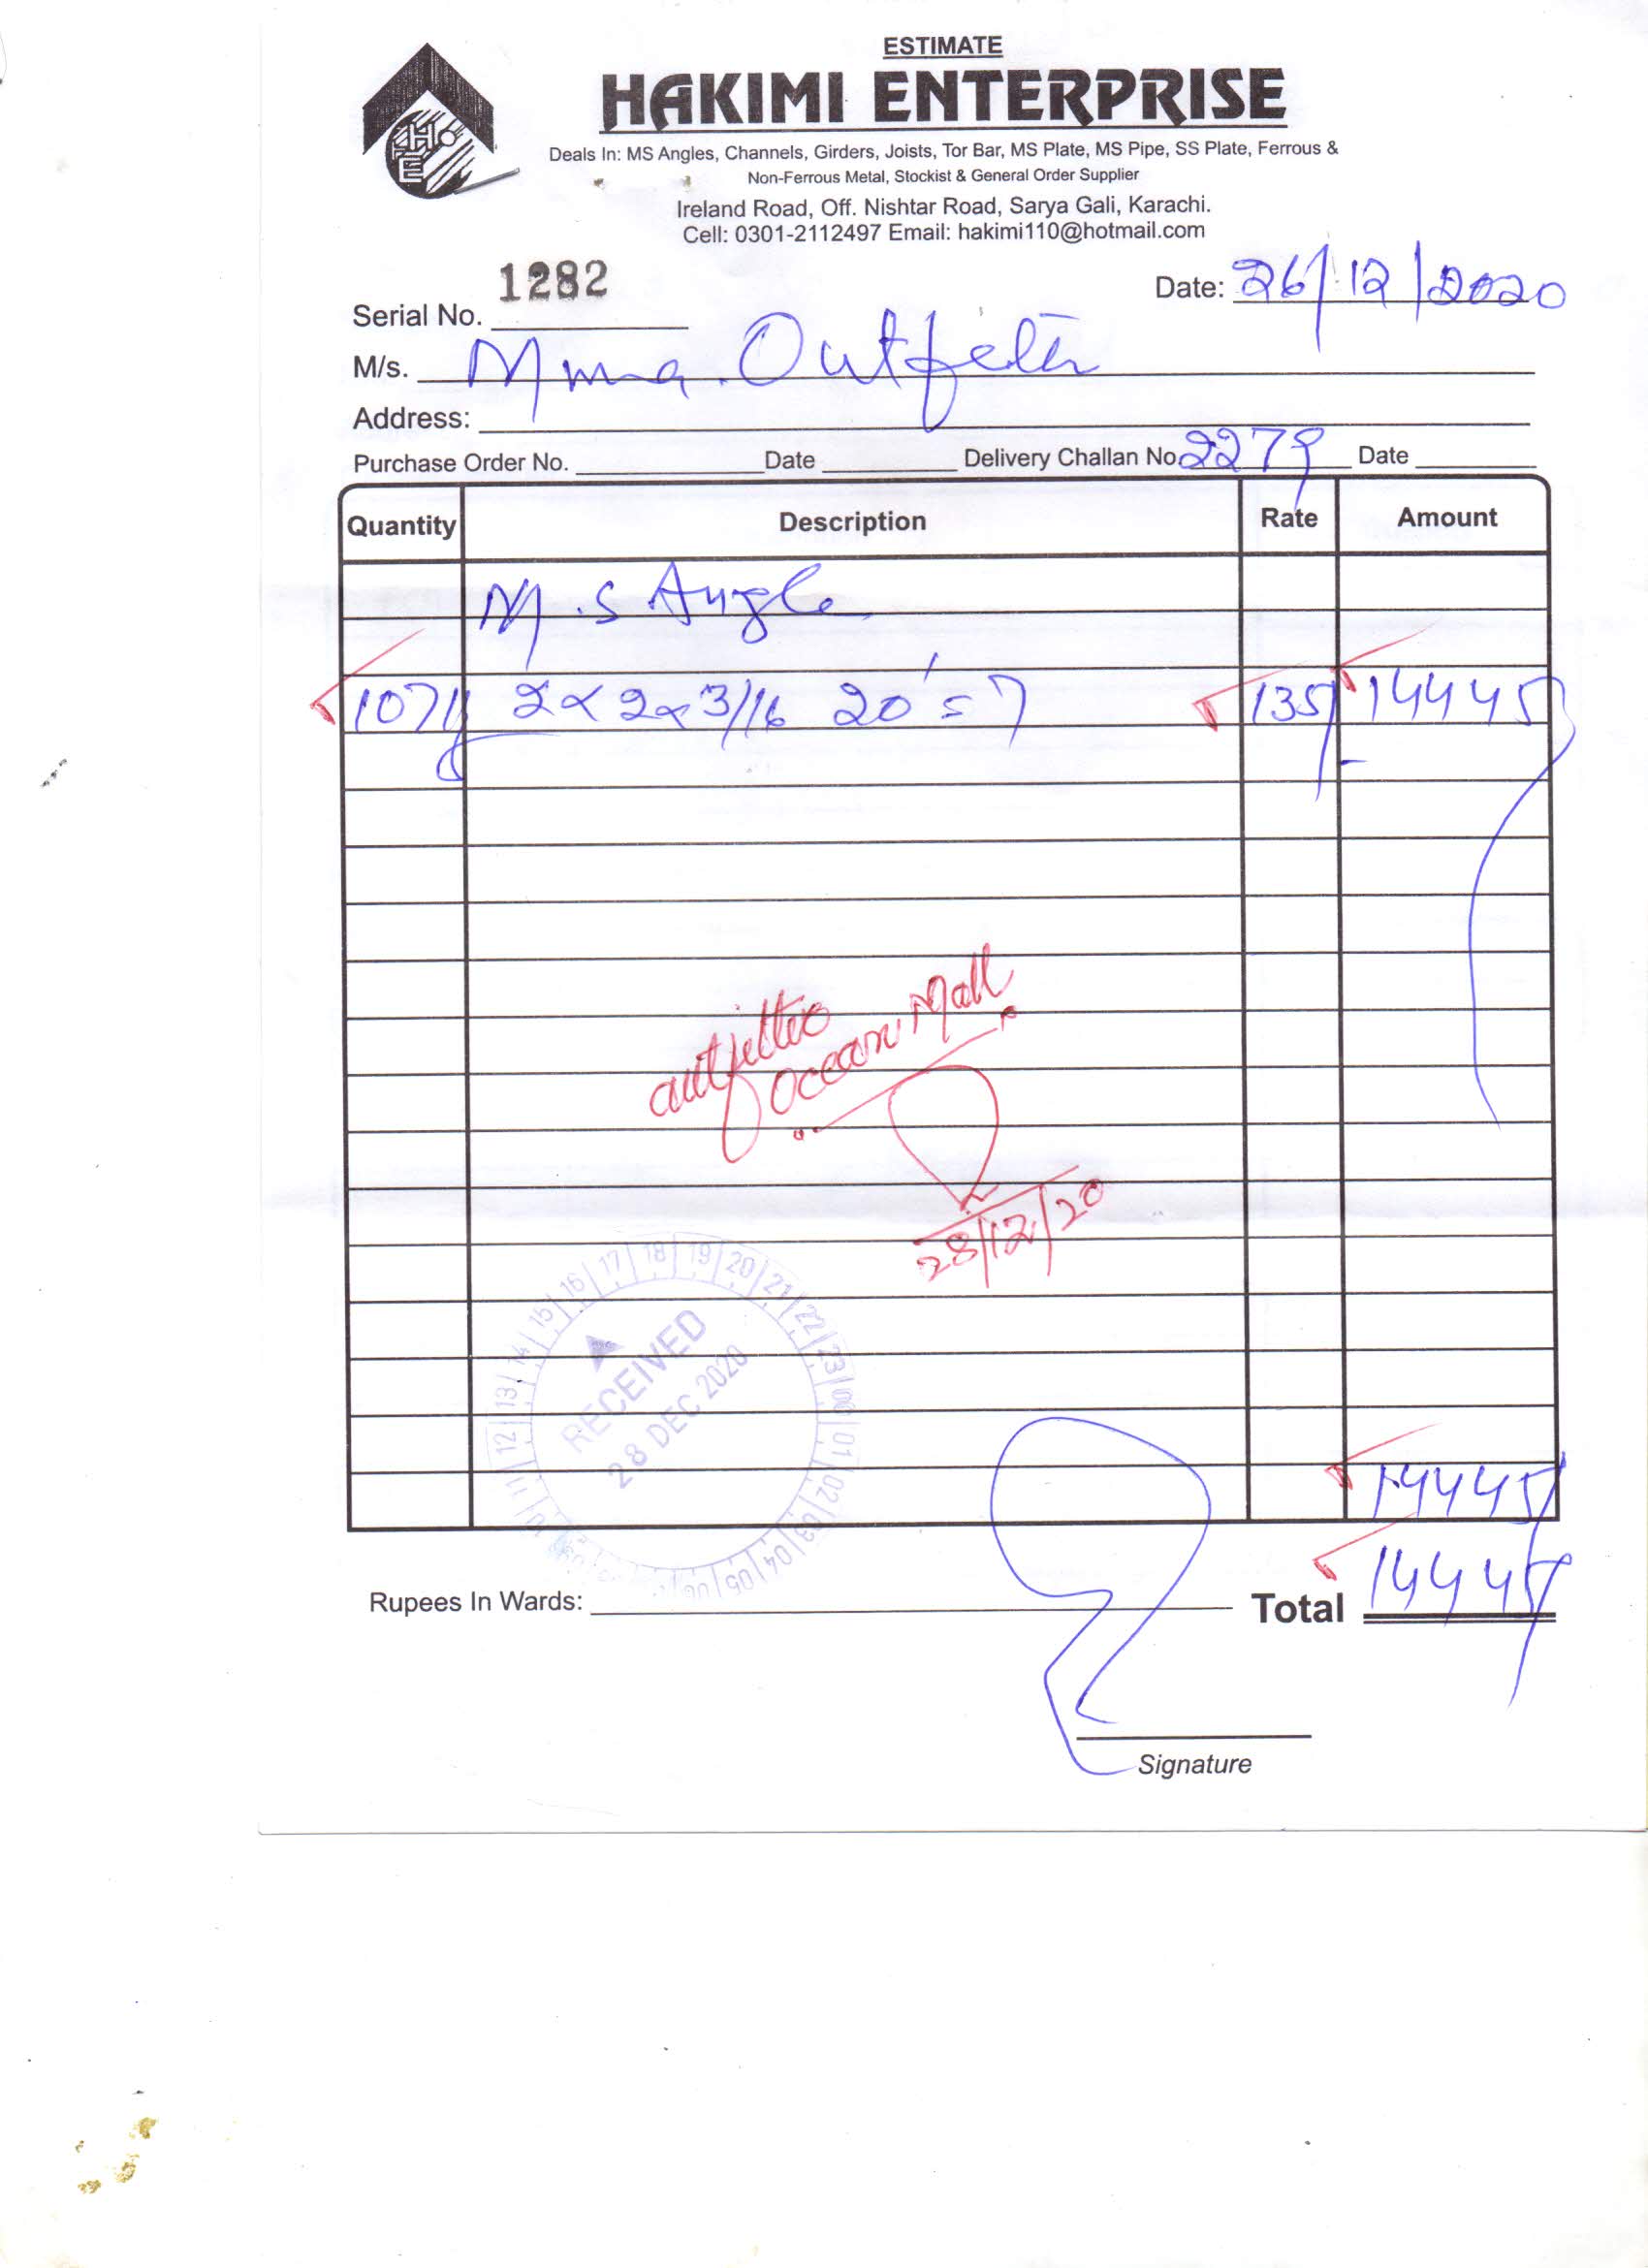 ESTIMATE
HAKIMI ENTERPRISE
Deals In: MS Angles, Channels, Girders, Joists, Tor Bar, MS Plate, MS Pipe, SS Plate, Ferrous &
Non-Ferrous Metal, Stockist & General Order Supplier
Ireland Road, Off. Nishtar Road, Sarya Gali, Karachi.
Cell: 0301-2112497 Email: hakimi110@hotmail.com
HE
Serial No. 1282 Date: 26/12/2020
M/s. Outfeter
Address:
Purchase Order No. Date Delivery Challan No. 2279 Date
Quantity Description Rate Amount
M.S Angle
2 x 2 x 3/16 20' = 7 135/- 14445
Ocean Mall
28/12/20
11 12 13 14 15 16 17 18 19 20 21 22 23 00 01 02 03 04 05
RECEIVED
28 DEC 2020
14445
Rupees In Wards: Total 14445
Signature